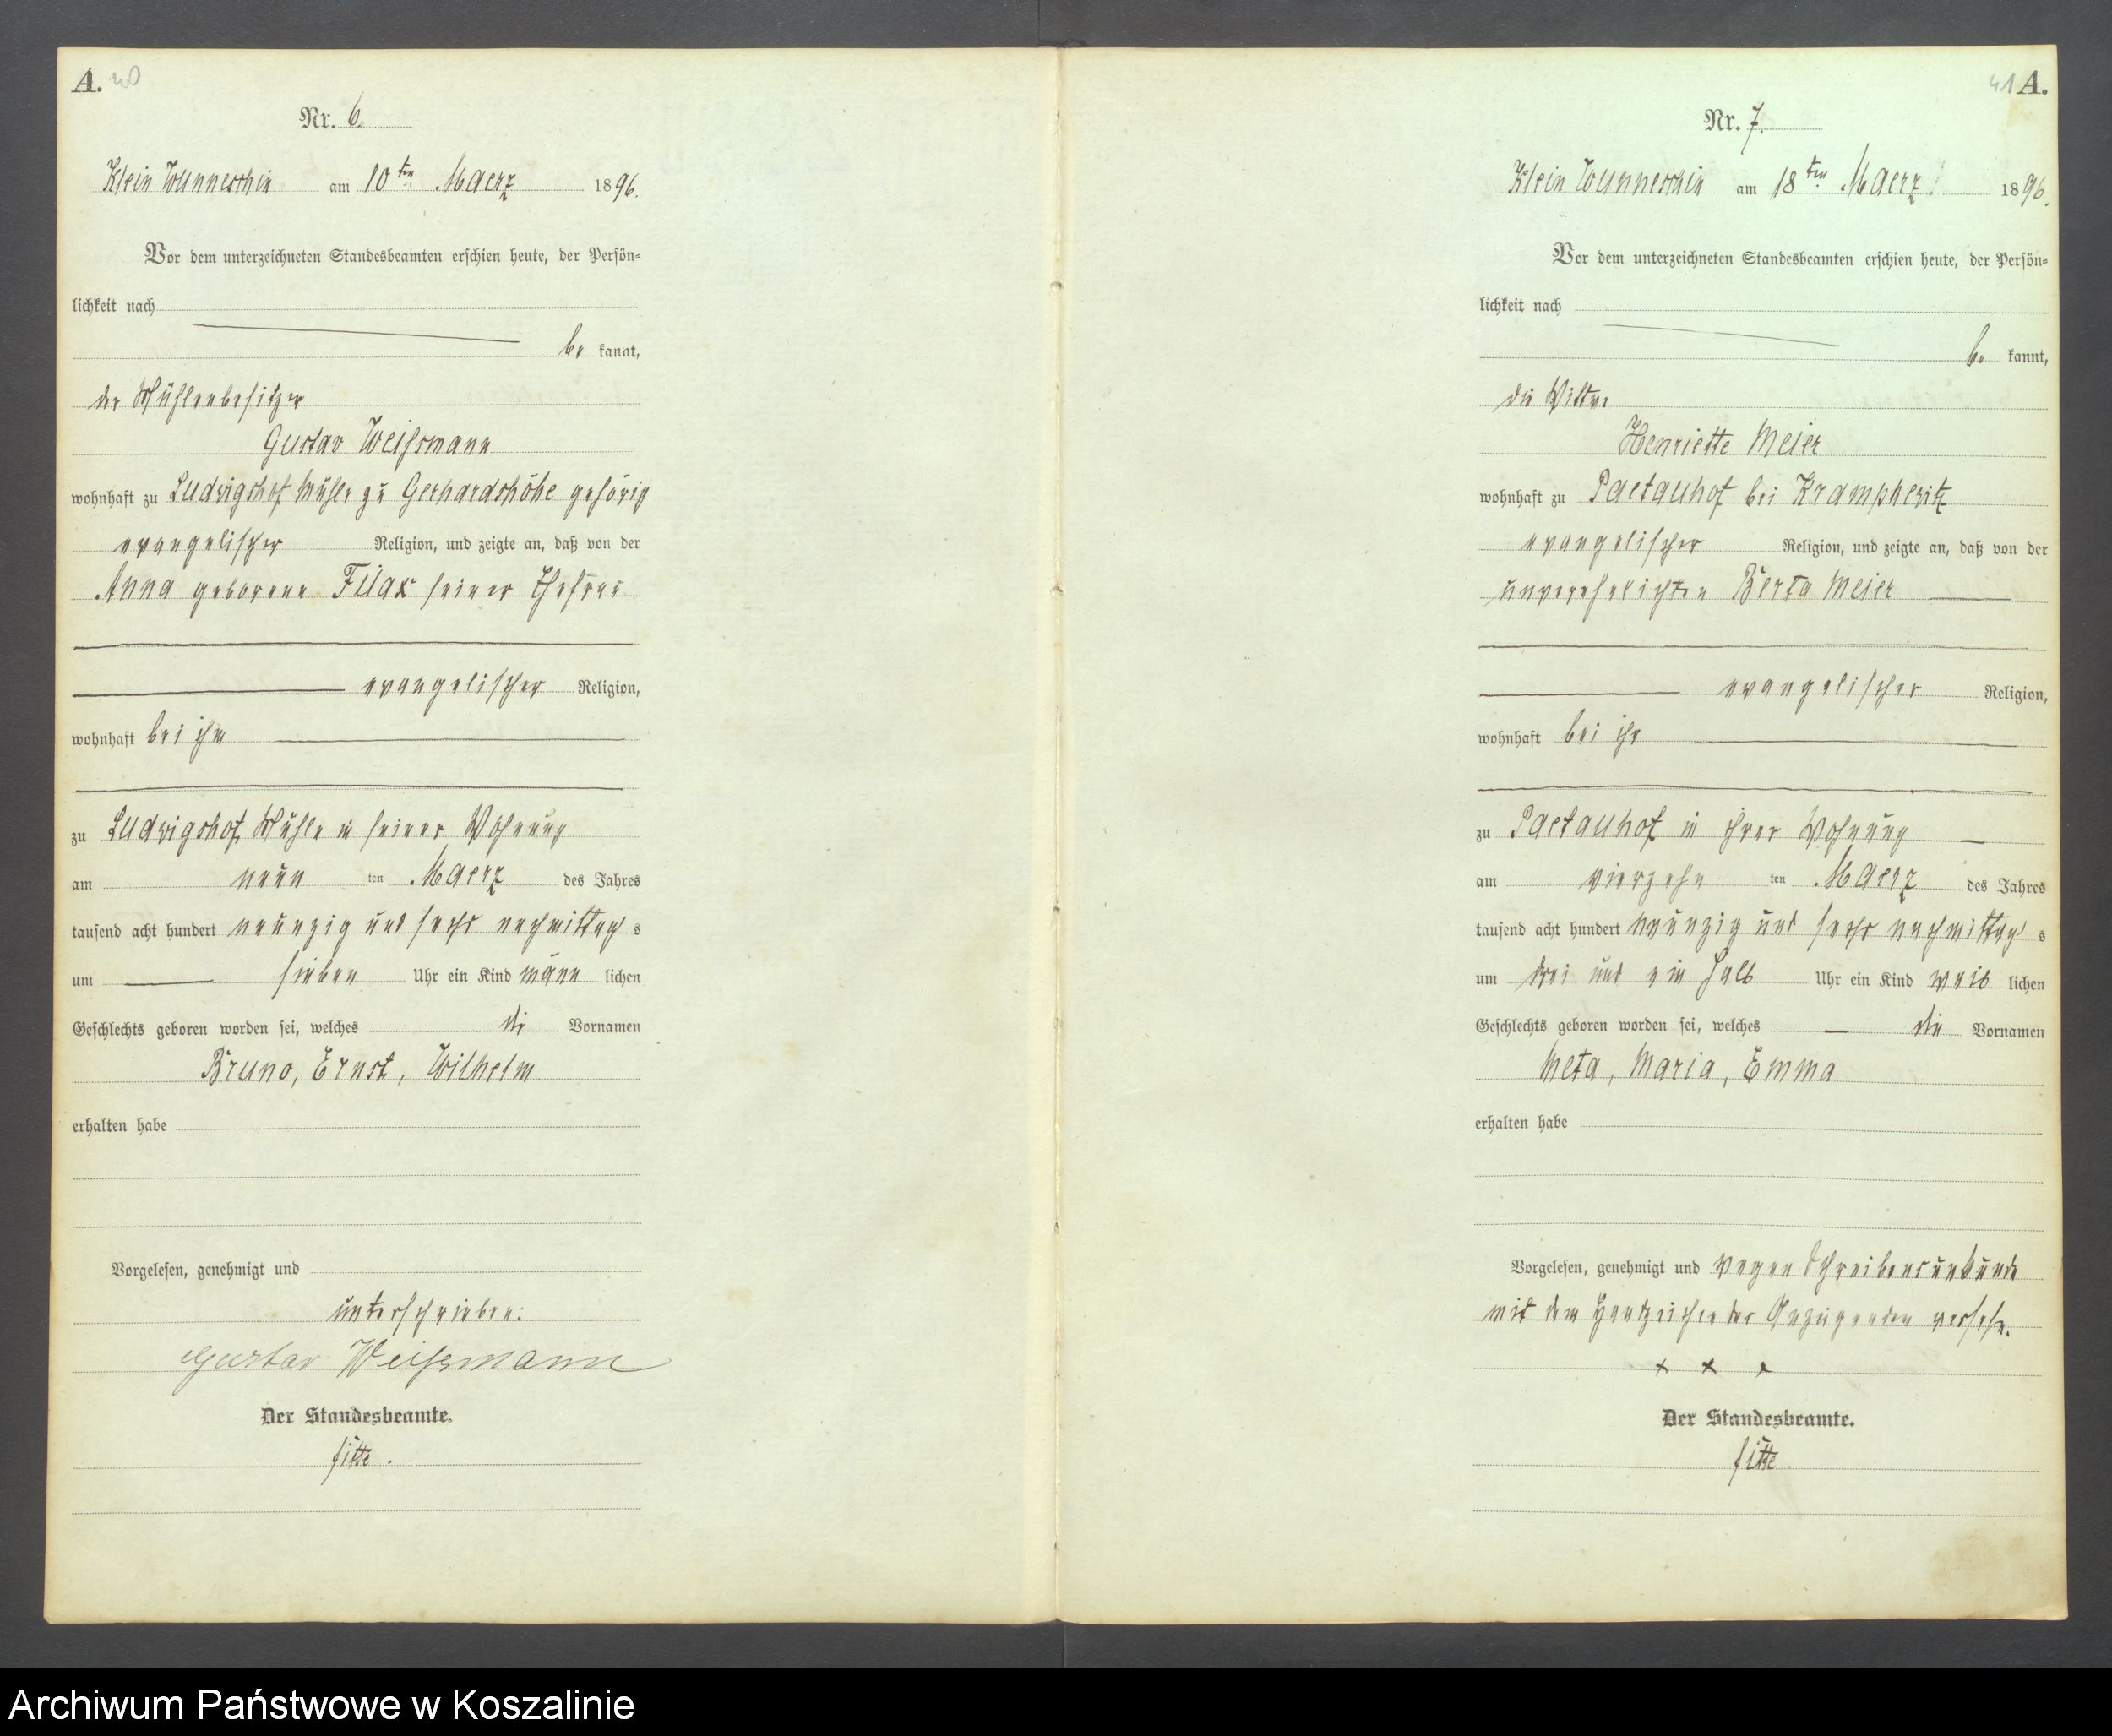 A. 40
Nr. 6.
Klein Wunneschin am 10ten Maerz 1896.
Vor dem unterzeichneten Standesbeamten erschien heute, der Persön-
lichkeit nach
be kannt,
der Mühlenbesitzer
Gustav Weißmann
wohnhaft zu Ludwigshof Mühle zu Gerhardshöhe gehörig
evangelischer Religion, und zeigte an, daß von der
Anna geborene Filax seiner Ehefrau
evangelischer Religion,
wohnhaft bei ihm
zu Ludwigshof Mühle in seiner Wohnung
am neun ten Maerz des Jahres
tausend acht hundert neunzig und sechs nachmittag s
um sieben Uhr ein Kind männ lichen
Geschlechts geboren worden sei, welches die Vornamen
Bruno, Ernst, Wilhelm
erhalten habe
Vorgelesen, genehmigt und
unterschrieben:
Gustav Weißmann
Der Standesbeamte.
41 A.
Nr. 7.
Klein Wunneschin am 18ten Maerz 1896.
Vor dem unterzeichneten Standesbeamten erschien heute, der Persön-
lichkeit nach
be kannt,
die Wittwe
Henriette Meier
wohnhaft zu Paetauhof bei Krampkewitz
evangelischer Religion, und zeigte an, daß von der
unverehelichten Berta Meier
evangelischer Religion,
wohnhaft bei ihr
zu Paetauhof in ihrer Wohnung
am vierzehn ten Maerz des Jahres
tausend acht hundert neunzig und sechs nachmittag s
um drei und ein halb Uhr ein Kind weib lichen
Geschlechts geboren worden sei, welches die Vornamen
Meta, Maria, Emma
erhalten habe
Vorgelesen, genehmigt und wegen Schreibensunkunde
mit dem Handzeichen der Anzeigenden versehn.
x x x
Der Standesbeamte.
Archiwum Państwowe w Koszalinie